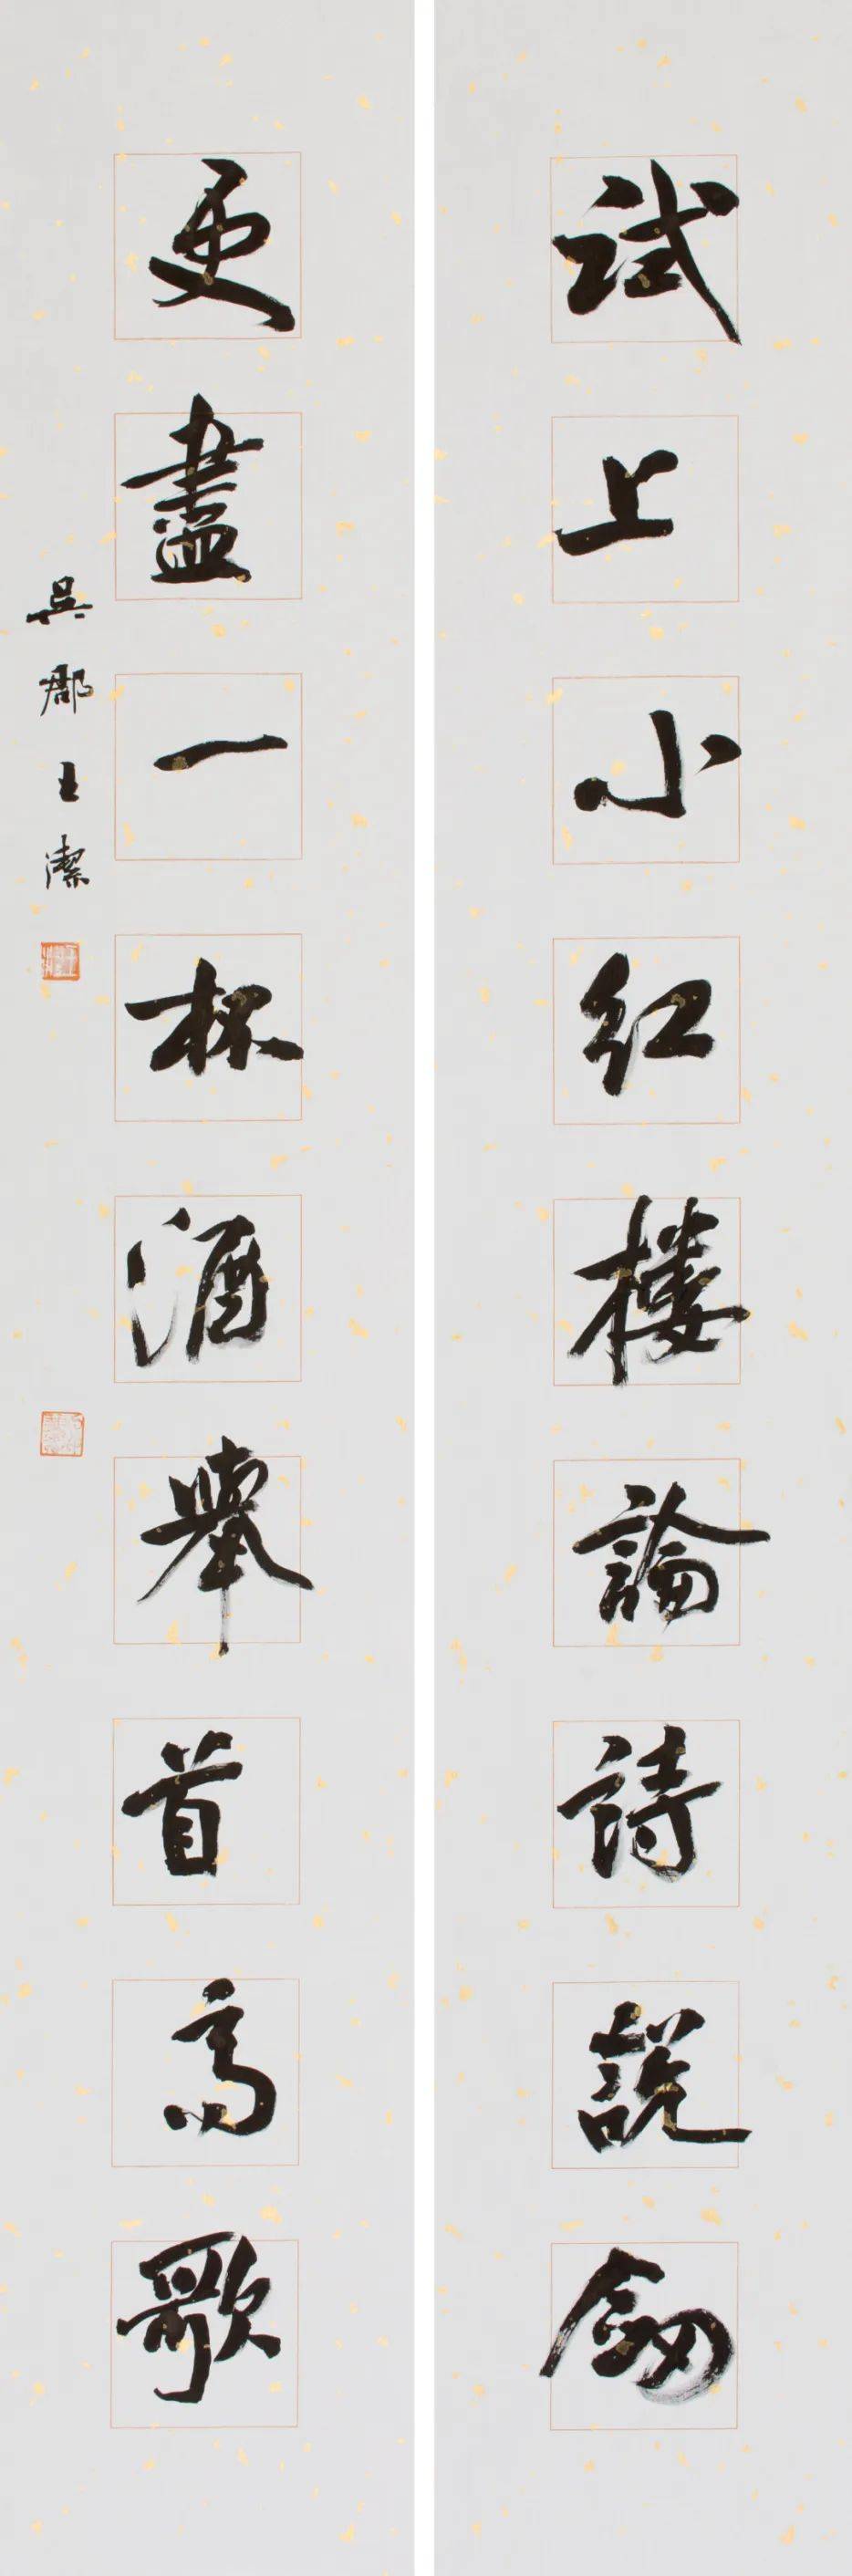 試上小紅樓論詩說劍
更盡一杯酒舉首高歌
吳郡王潔